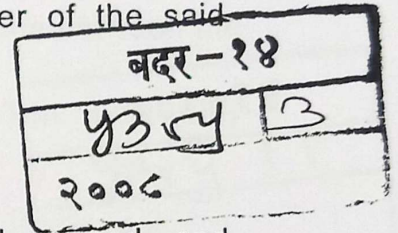 er of the said
बदर-१४
५३७५ ३
२००८